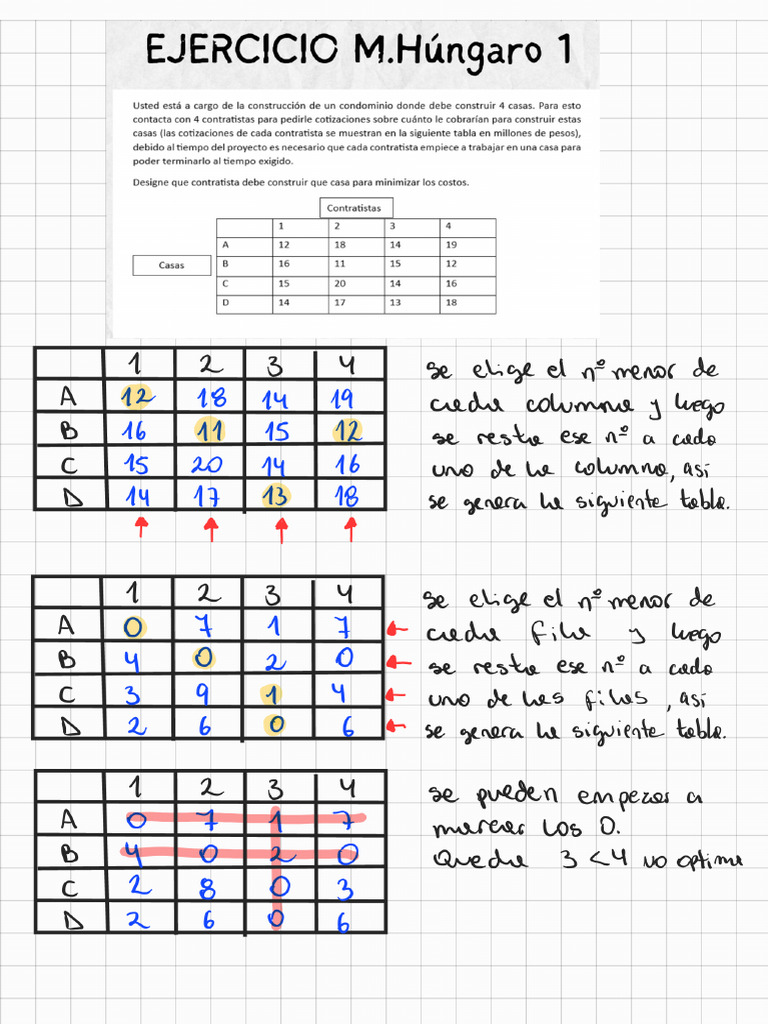 EJERCICIO M.Húngaro 1
Usted está a cargo de la construcción de un condominio donde debe construir 4 casas. Para esto
contacta con 4 contratistas para pedirle cotizaciones sobre cuánto le cobrarían para construir estas
casas (las cotizaciones de cada contratista se muestran en la siguiente tabla en millones de pesos),
debido al tiempo del proyecto es necesario que cada contratista empiece a trabajar en una casa para
poder terminarlo al tiempo exigido.
Designe que contratista debe construir que casa para minimizar los costos.
Contratistas
1 2 3 4
A 12 18 14 19
Casas
B 16 11 15 12
C 15 20 14 16
D 14 17 13 18
1 2 3 4
A 12 18 14 19
B 16 11 15 12
C 15 20 14 16
D 14 17 13 18
se elige el nº menor de
cada columna y luego
se resta ese nº a cada
uno de la columna, así
se genera la siguiente tabla.
1 2 3 4
A 0 7 1 7
B 4 0 2 0
C 3 9 1 4
D 2 6 0 6
se elige el nº menor de
cada fila y luego
se resta ese nº a cada
uno de las filas, así
se genera la siguiente tabla.
1 2 3 4
A 0 7 1 7
B 4 0 2 0
C 2 8 0 3
D 2 6 0 6
se pueden empezar a
marcar los 0.
Queda 3 < 4 no optima